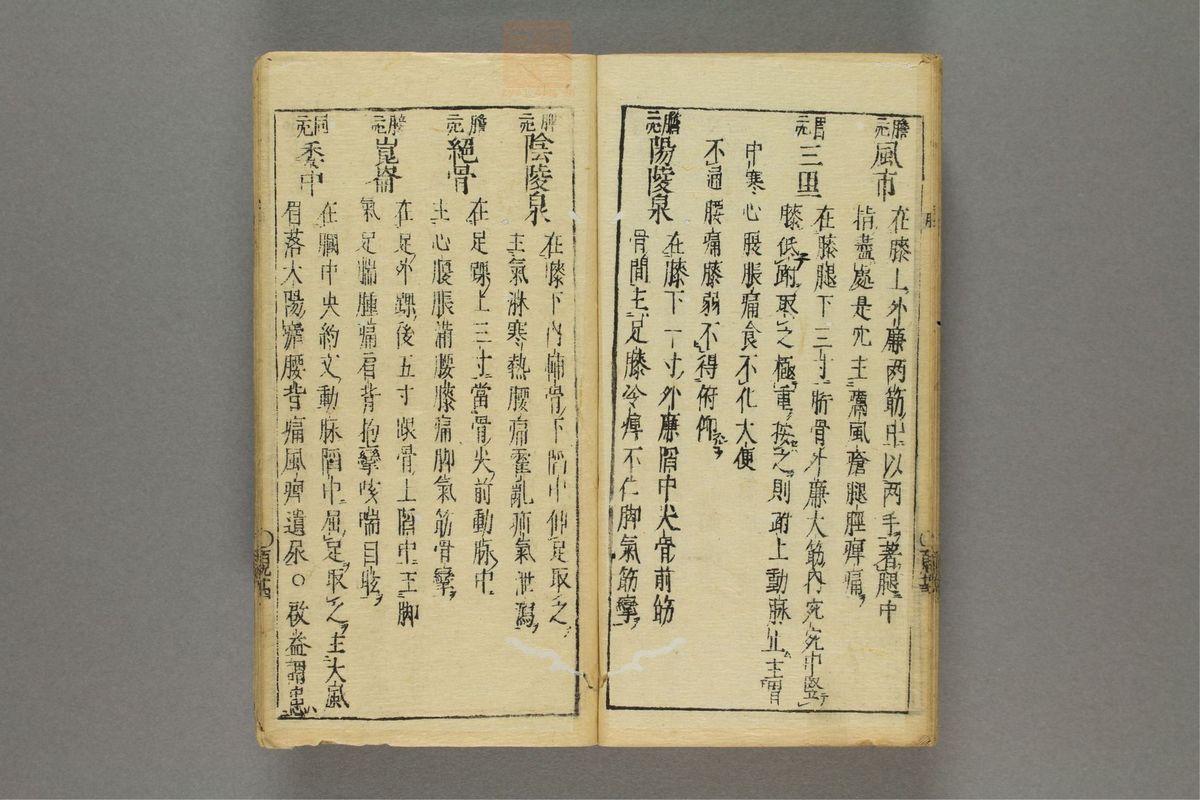 膽二元 風市
在膝上外廉两筋中以两手著腿中
指盡處是穴主癘風瘡腿脛痺痛
胃二元 三里
在膝腿下三寸胻骨外廉大筋内宛宛中竪
膝低跗取之極重按之則跗上動脉止主胃
中寒心腹脹痛食不化大便
不通腰痛膝弱不得俯仰
膽二元 陽陵泉
在膝下一寸外廉陷中尖骨前筋
骨間主足膝冷痺不仁脚氣筋攣
脾二元 陰陵泉
在膝下内輔骨下陷中伸足取之
主氣淋寒熱腰痛霍亂疝氣泄瀉
膽二元 絕骨
在足踝上三寸當骨尖前動脉中
主心腹脹滿腰膝痛脚氣筋骨攣
二元 崑崙
在足外踝後五寸跟骨上陷中主脚
氣足腨腫痛肩背拘攣咳喘目眩
同二元 委中
在膕中央約文動脉陷中屈足取之主大風
眉落太陽瘧腰背痛風痺遺尿○啟益謂